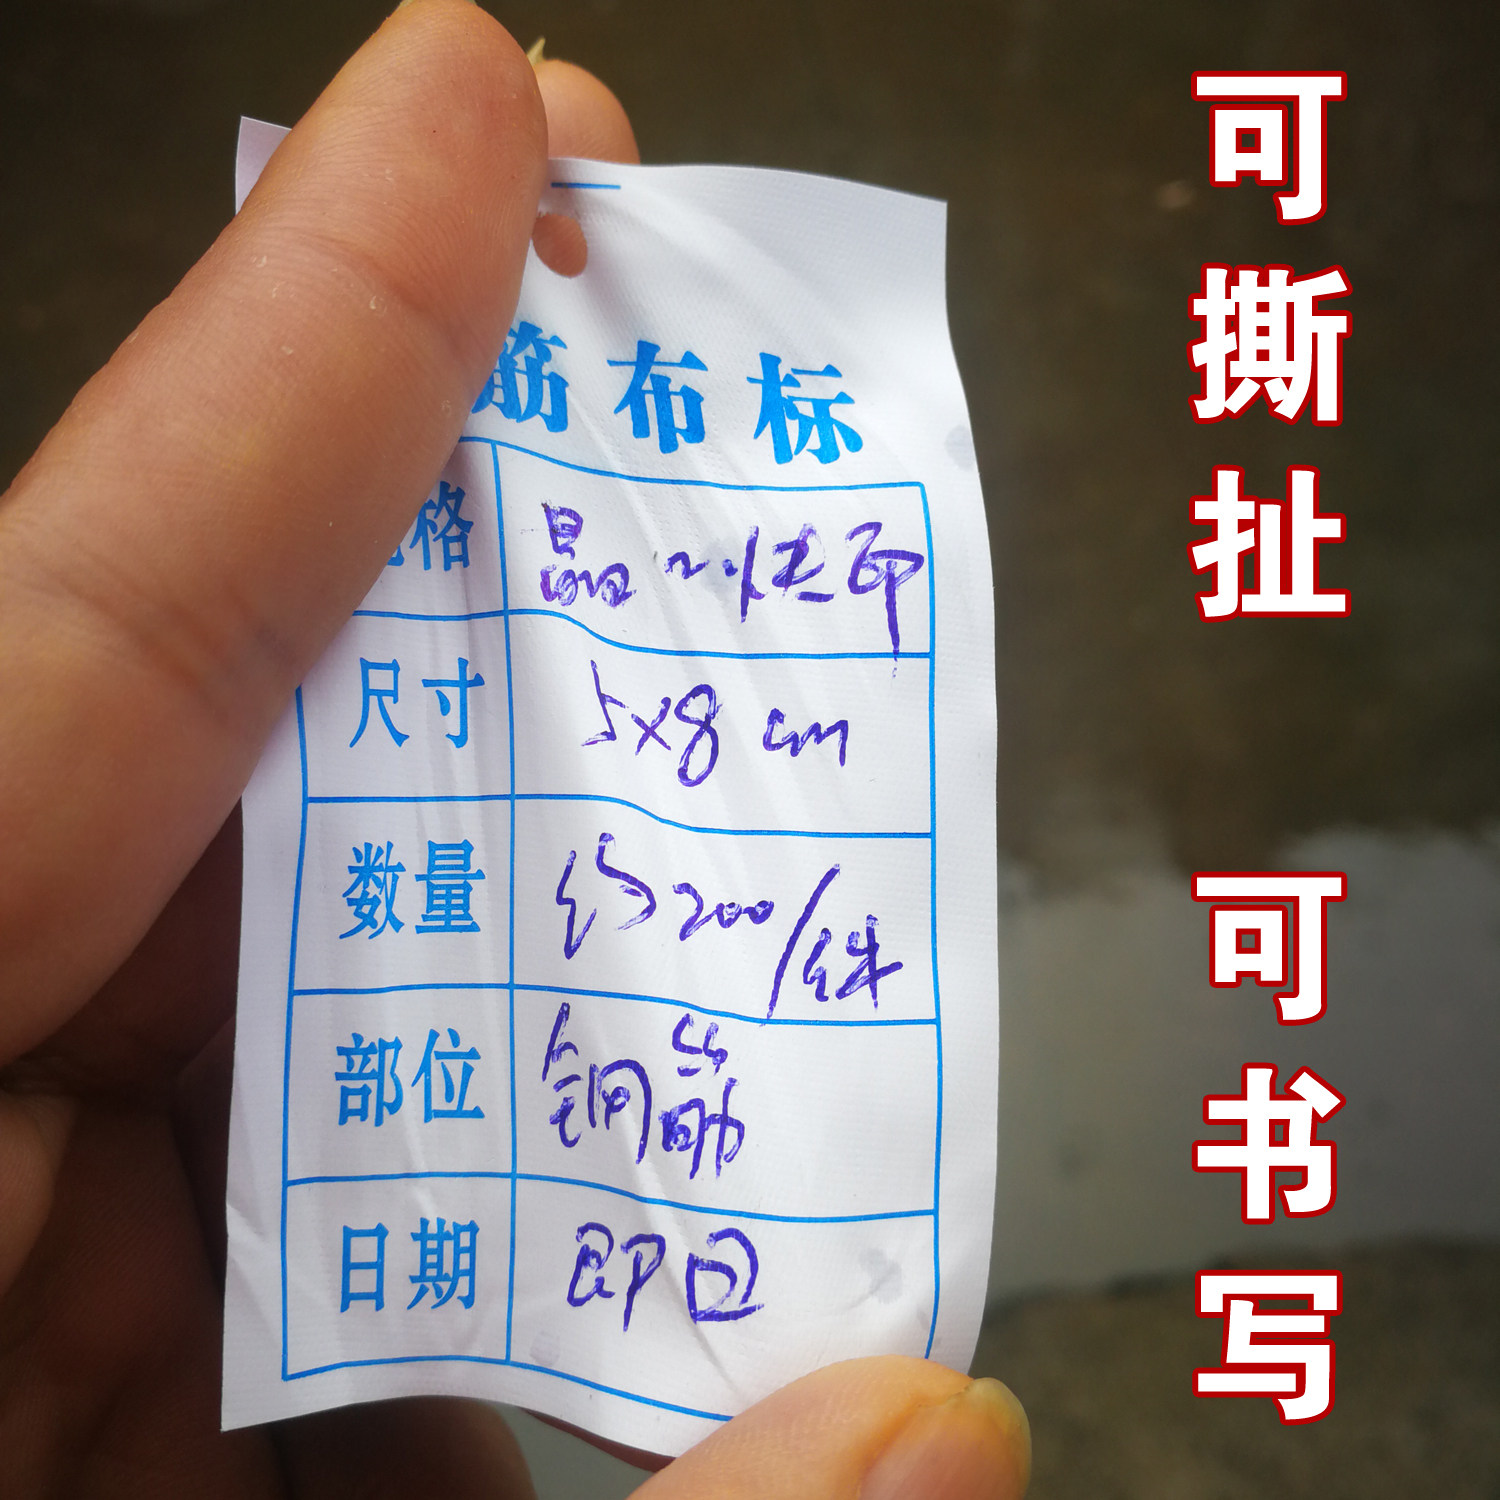 筋布标
格 晶
尺寸 5×8 cm
数量 约200/件
部位 钢筋
日期 即日
可撕扯 可书写